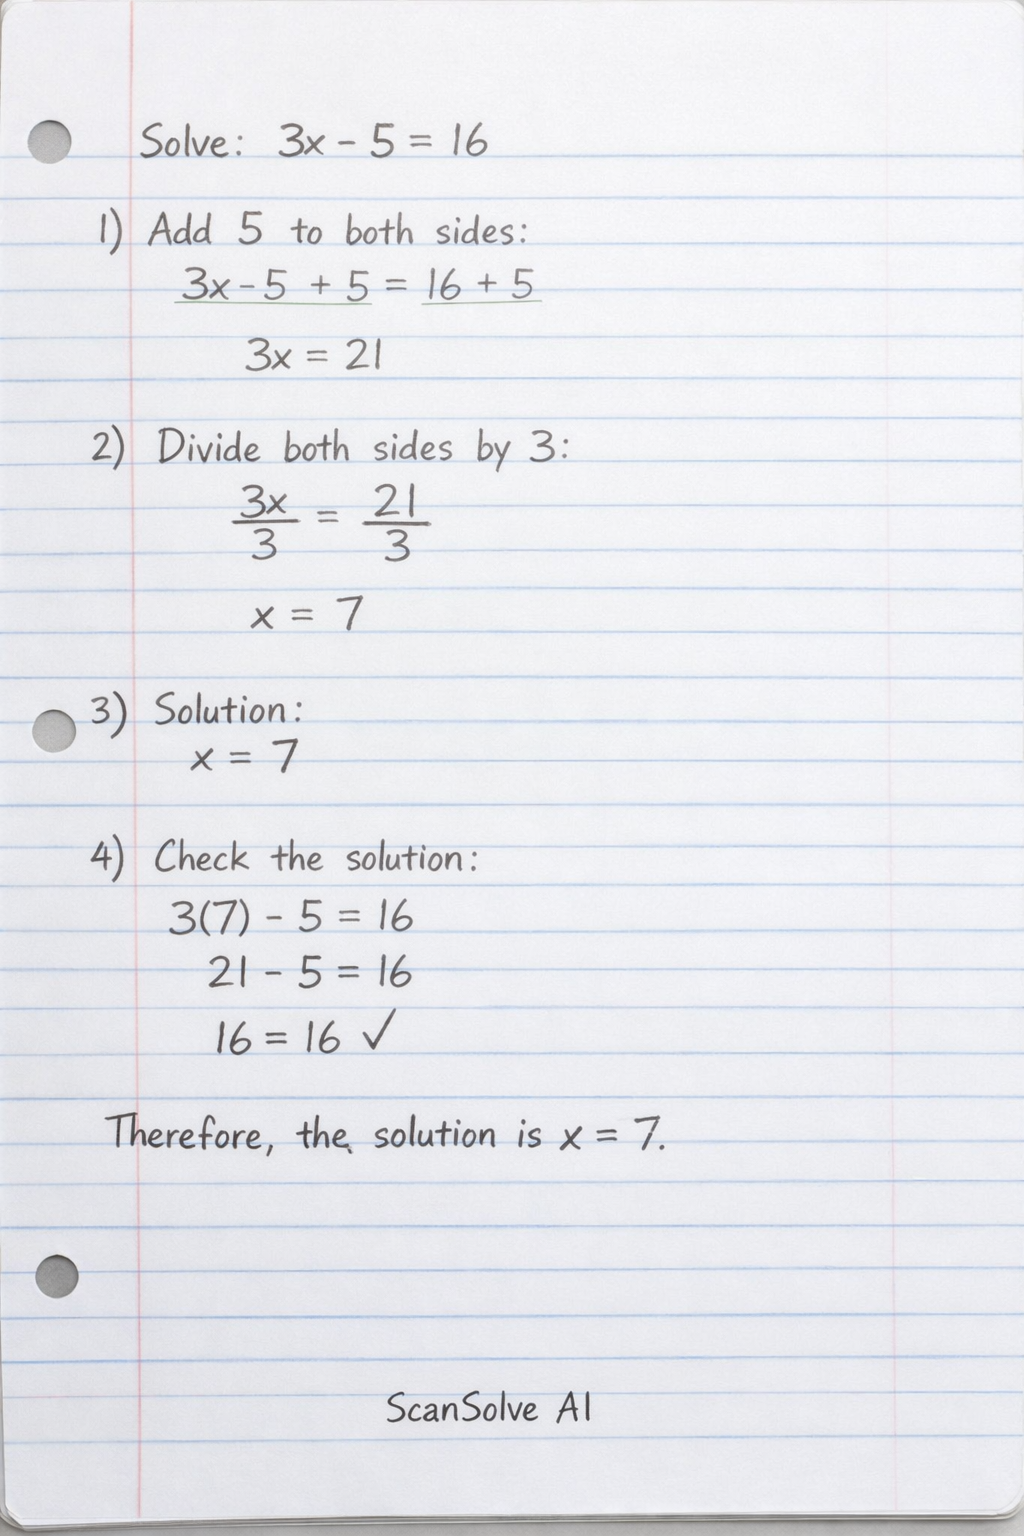 Solve: 3x - 5 = 16
1) Add 5 to both sides:
3x - 5 + 5 = 16 + 5
3x = 21
2) Divide both sides by 3:
3x/3 = 21/3
x = 7
3) Solution:
x = 7
4) Check the solution:
3(7) - 5 = 16
21 - 5 = 16
16 = 16 ✓
Therefore, the solution is x = 7.
ScanSolve AI